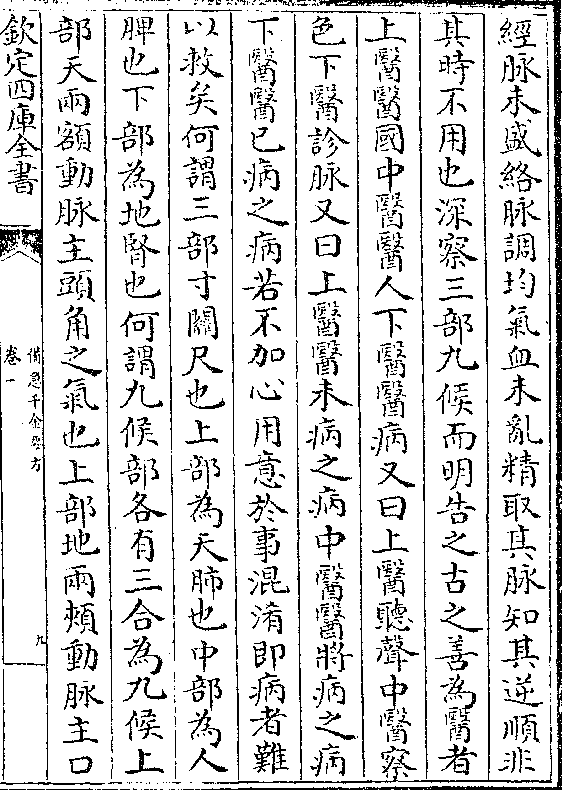 經脉未盛絡脉調均氣血未亂精取其脉知其逆順非
其時不用也深察三部九候而明告之古之善為醫者
上醫醫國中醫醫人下醫醫病又曰上醫聽聲中醫察
色下醫診脉又曰上醫醫未病之病中醫醫將病之病
下醫醫已病之病若不加心用意於事混淆即病者難
以救矣何謂三部寸關尺也上部為天肺也中部為人
脾也下部為地腎也何謂九候部各有三合為九候上
部天兩額動脉主頭角之氣也上部地兩頰動脉主口
欽定四庫全書
備急千金要方
卷一
九